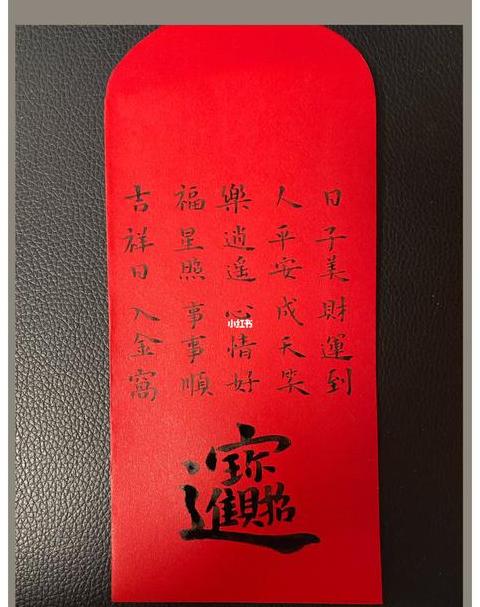 日子美財運到
人平安成天笑
樂逍遙心情好
福星照事事順
吉祥日入金窩
招財進寶
小红书